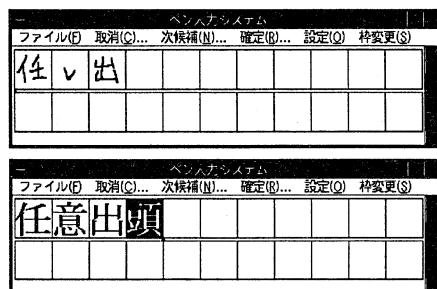 ペン入力システム
ファイル(F) 取消(C)... 次候補(N)... 確定(R)... 設定(O) 枠変更(S)
任 v 出
ペン入力システム
ファイル(F) 取消(C)... 次候補(N)... 確定(R)... 設定(O) 枠変更(S)
任意出頭